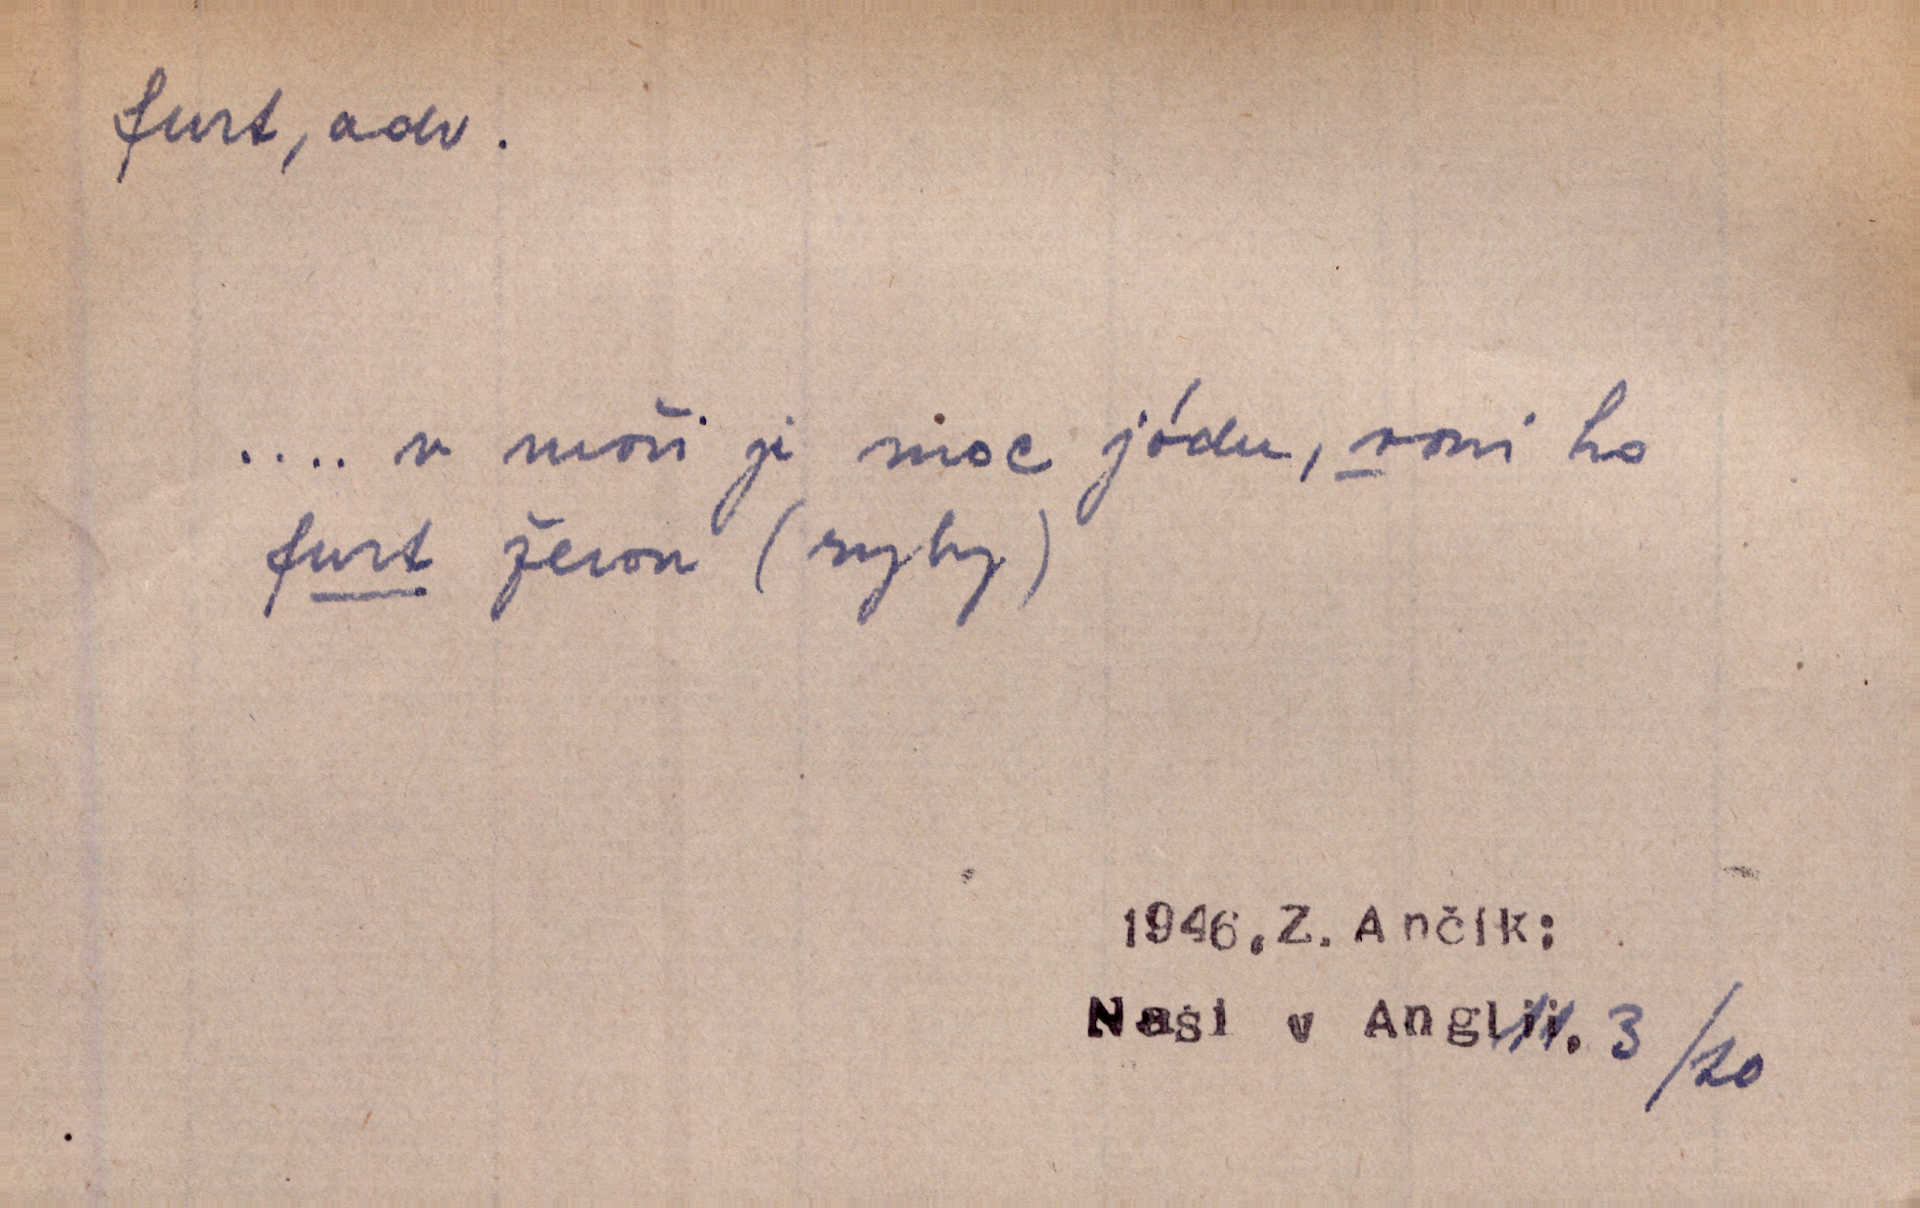 furt, adv.
.... v moři ji moc jódu, voni ho
furt žerou (ryby)
1946, Z. Ančík:
Naši v Anglii. 3/20